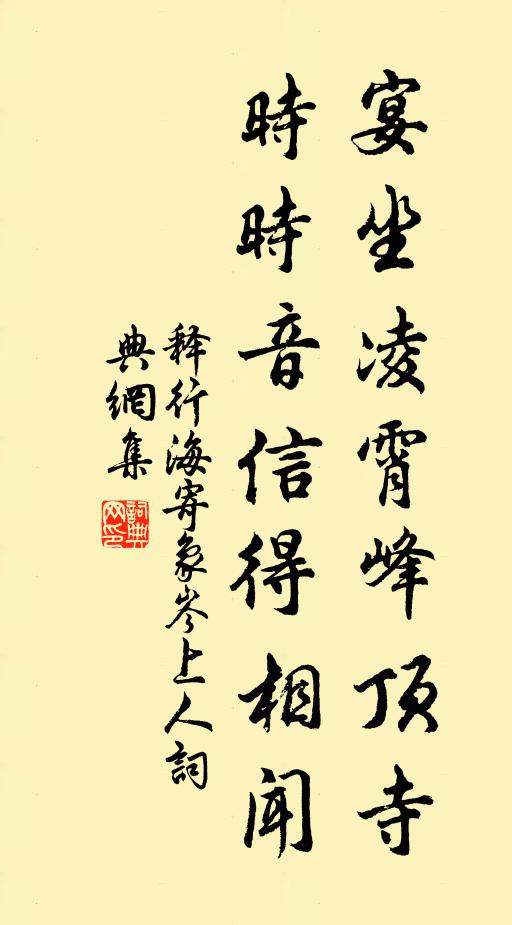 宴坐凌霄峰頂寺
時時音信得相聞
释行海寄象岑上人詞
典網集
詞典
网印